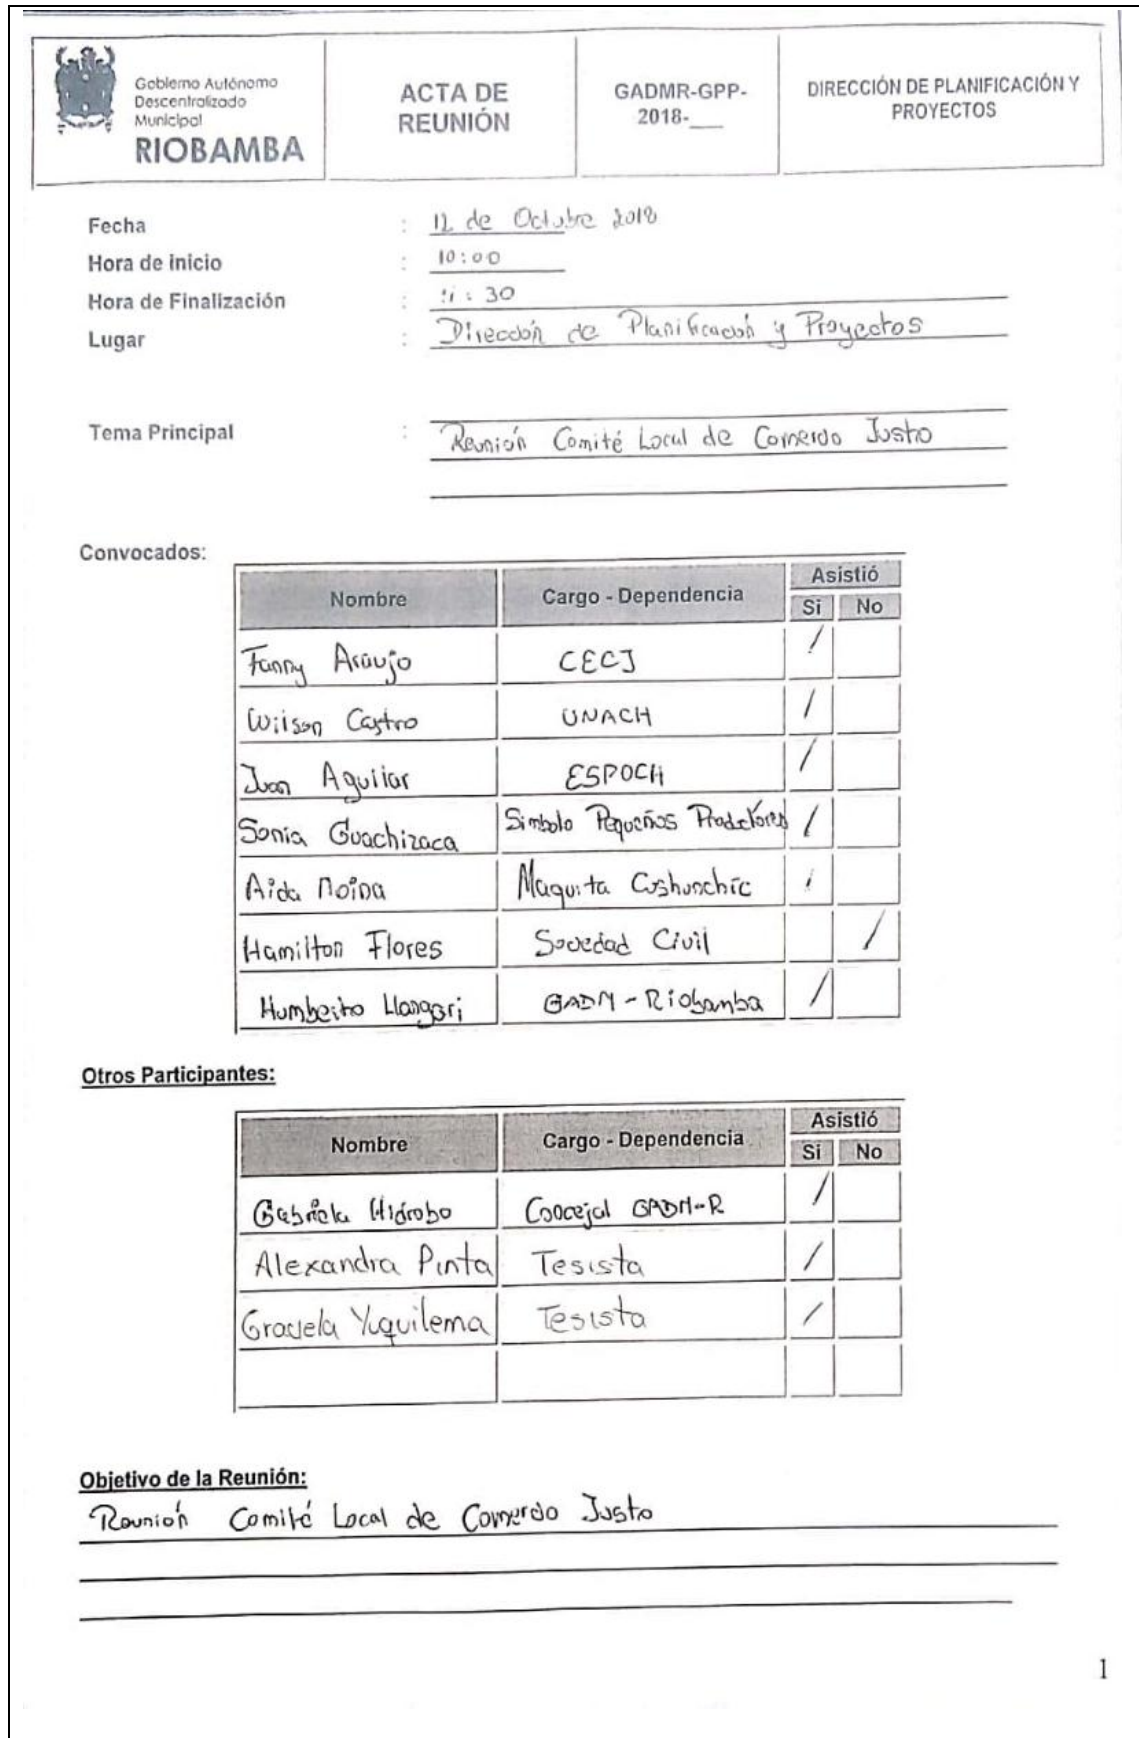 Gobierno Autónomo
Descentralizado
Municipal
RIOBAMBA
ACTA DE
REUNIÓN
GADMR-GPP-
2018-___
DIRECCIÓN DE PLANIFICACIÓN Y
PROYECTOS
Fecha : 12 de Octubre 2018
Hora de inicio : 10:00
Hora de Finalización : 11:30
Lugar : Dirección de Planificación y Proyectos
Tema Principal : Reunión Comité Local de Comercio Justo
Convocados:
Nombre Cargo - Dependencia Asistió
Si No
Fanny Araujo CECJ /
Wilson Castro UNACH /
Juan Aguilar ESPOCH /
Sonia Guachizaca Simbolo Pequeños Productores /
Aida Moina Maquita Cushunchic /
Hamilton Flores Sociedad Civil /
Humberto Llangari GADM - Riobamba /
Otros Participantes:
Nombre Cargo - Dependencia Asistió
Si No
Gabriela Hidrobo Concejal GADM-R /
Alexandra Pinta Tesista /
Graciela Yuquilema Tesista /
Objetivo de la Reunión:
Reunión Comité Local de Comercio Justo
1